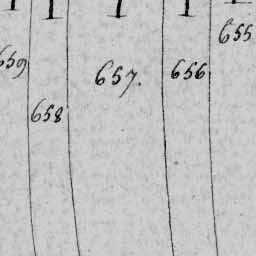 655
659
657.
656
658